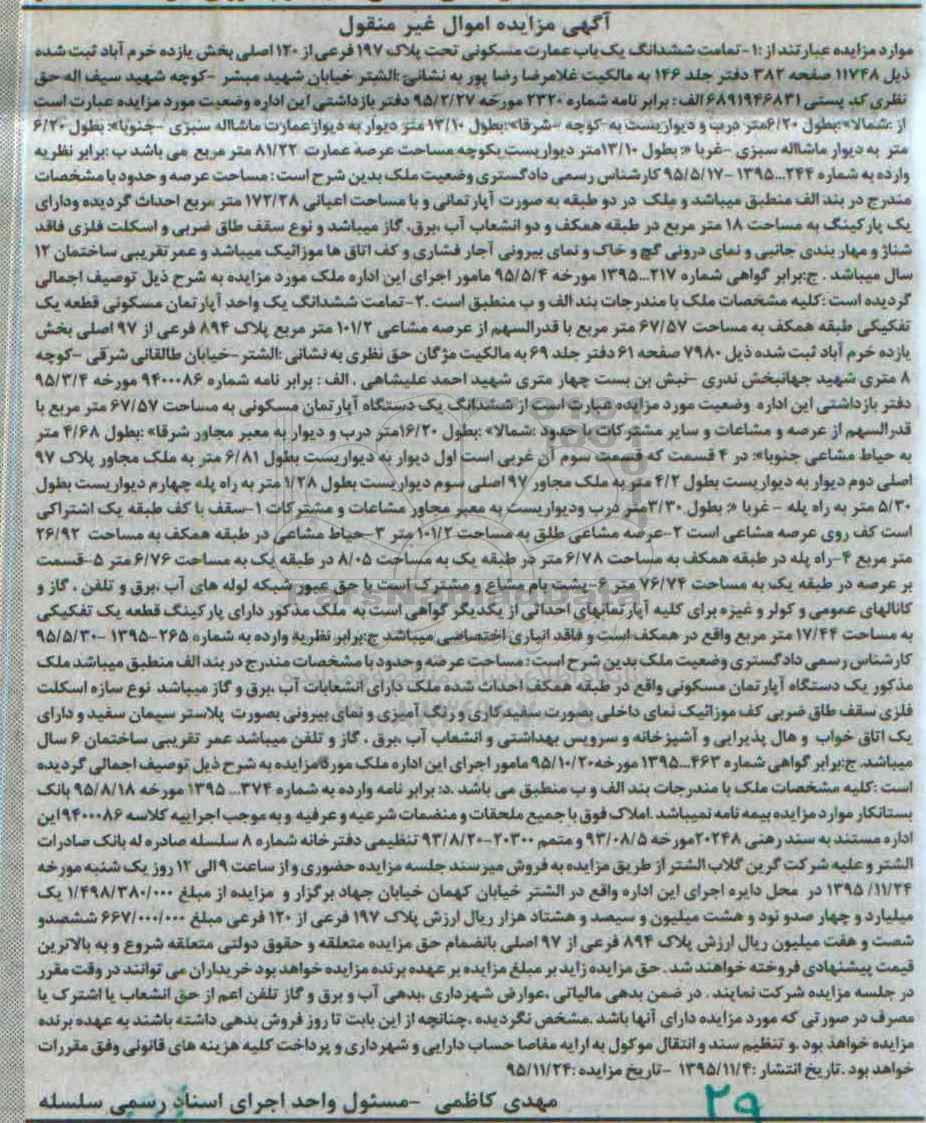 آگهی مزایده اموال غیر منقول
موارد مزایده عبارتند از :۱- تمامت ششدانگ یک باب عمارت مسکونی تحت پلاک ۱۹۷ فرعی از ۱۲۰ اصلی بخش یازده خرم آباد ثبت شده
ذیل ۱۱۷۴۸ صفحه ۳۸۲ دفتر جلد ۱۴۶ به مالکیت غلامرضا رضا پور به نشانی :الشتر خیابان شهید مبشر -کوچه شهید سیف اله حق
نظری کد پستی ۶۸۹۱۹۴۶۸۳۱ الف : برابر نامه شماره ۲۳۲۰ مورخه ۹۵/۲/۲۷ دفتر بازداشتی این اداره وضعیت مورد مزایده عبارت است
از :شمالا» :بطول ۶/۲۰متر درب و دیواریست به کوچه -شرقا»:بطول ۱۳/۱۰ متر دیوار به دیوار عمارت ماشااله سبزی -جنوبا»: بطول ۶/۲۰
متر به دیوار ماشااله سبزی -غربا «: بطول ۱۳/۱۰متر دیواریست بکوچه مساحت عرصه عمارت ۸۱/۲۲ متر مربع می باشد ب :برابر نظریه
وارده به شماره ۲۴۴...۱۳۹۵ -۹۵/۵/۱۷ کارشناس رسمی دادگستری وضعیت ملک بدین شرح است : مساحت عرصه و حدود با مشخصات
مندرج در بند الف منطبق میباشد و ملک در دو طبقه به صورت آپارتمانی و با مساحت اعیانی ۱۷۲/۲۸ متر مربع احداث گردیده ودارای
یک پارکینگ به مساحت ۱۸ متر مربع در طبقه همکف و دو انشعاب آب ،برق، گاز میباشد و نوع سقف طاق ضربی و اسکلت فلزی فاقد
شناژ و مهار بندی جانبی و نمای درونی گچ و خاک و نمای بیرونی آجار فشاری و کف اتاق ها موزائیک میباشد و عمر تقریبی ساختمان ۱۲
سال میباشد . ج:برابر گواهی شماره ۲۱۷...۱۳۹۵ مورخه ۹۵/۵/۴ مامور اجرای این اداره ملک مورد مزایده به شرح ذیل توصیف اجمالی
گردیده است :کلیه مشخصات ملک با مندرجات بند الف و ب منطبق است .۲- تمامت ششدانگ یک واحد آپارتمان مسکونی قطعه یک
تفکیکی طبقه همکف به مساحت ۶۷/۵۷ متر مربع با قدرالسهم از عرصه مشاعی ۱۰۱/۲ متر مربع پلاک ۸۹۴ فرعی از ۹۷ اصلی بخش
یازده خرم آباد ثبت شده ذیل ۷۹۸۰ صفحه ۶۱ دفتر جلد ۶۹ به مالکیت مژگان حق نظری به نشانی :الشتر-خیابان طالقانی شرقی -کوچه
۸ متری شهید جهانبخش نذری -نبش بن بست چهار متری شهید احمد علیشاهی . الف : برابر نامه شماره ۹۴۰۰۰۸۶ مورخه ۹۵/۳/۴
دفتر بازداشتی این اداره وضعیت مورد مزایده عبارت است از ششدانگ یک دستگاه آپارتمان مسکونی به مساحت ۶۷/۵۷ متر مربع با
قدرالسهم از عرصه و مشاعات و سایر مشترکات با حدود :شمالا» :بطول ۱۶/۲۰متر درب و دیوار به معبر مجاور شرقا» :بطول ۴/۶۸ متر
به حیاط مشاعی جنوبا»: در ۴ قسمت که قسمت سوم آن غربی است اول دیوار به دیواریست بطول ۶/۸۱ متر به ملک مجاور پلاک ۹۷
اصلی دوم دیوار به دیواریست بطول ۴/۲ متر به ملک مجاور ۹۷ اصلی سوم دیواریست بطول ۱/۲۸ متر به راه پله چهارم دیواریست بطول
۵/۳۰ متر به راه پله - غربا «: بطول ۳/۳۰متر درب ودیواریست به معبر مجاور مشاعات و مشترکات ۱-سقف با کف طبقه یک اشتراکی
است کف روی عرصه مشاعی است ۲-عرصه مشاعی طلق به مساحت ۱۰۱/۲ متر ۳-حیاط مشاعی در طبقه همکف به مساحت ۲۶/۹۲
متر مربع ۴-راه پله در طبقه همکف به مساحت ۶/۷۸ متر در طبقه یک به مساحت ۸/۰۵ در طبقه یک به مساحت ۶/۷۶ متر ۵-قسمت
بر عرصه در طبقه یک به مساحت ۷۶/۷۴ متر ۶-پشت بام مشاع و مشترک است با حق عبور شبکه لوله های آب ،برق و تلفن ، گاز و
کانالهای عمومی و کولر و غیره برای کلیه آپارتمانهای احداثی از یکدیگر گواهی است به ملک مذکور دارای پارکینگ قطعه یک تفکیکی
به مساحت ۱۷/۴۴ متر مربع واقع در همکف است و فاقد انباری اختصاصی میباشد ج:برابر نظریه وارده به شماره ۲۶۵-۱۳۹۵ -۹۵/۵/۳۰
کارشناس رسمی دادگستری وضعیت ملک بدین شرح است : مساحت عرصه وحدود با مشخصات مندرج در بند الف منطبق میباشد ملک
مذکور یک دستگاه آپارتمان مسکونی واقع در طبقه همکف احداث شده ملک دارای انشعابات آب ،برق و گاز میباشد نوع سازه اسکلت
فلزی سقف طاق ضربی کف موزائیک نمای داخلی بصورت سفیدکاری و رنگ آمیزی و نمای بیرونی بصورت پلاستر سیمان سفید و دارای
یک اتاق خواب و هال پذیرایی و آشپزخانه و سرویس بهداشتی و انشعاب آب ،برق ، گاز و تلفن میباشد عمر تقریبی ساختمان ۶ سال
میباشد. ج:برابر گواهی شماره ۴۶۳...۱۳۹۵ مورخه۹۵/۱۰/۲۰ مامور اجرای این اداره ملک مورد مزایده به شرح ذیل توصیف اجمالی گردیده
است :کلیه مشخصات ملک با مندرجات بند الف و ب منطبق می باشد .د: برابر نامه وارده به شماره ۳۷۴... ۱۳۹۵ مورخه ۹۵/۸/۱۸ بانک
بستانکار موارد مزایده بیمه نامه نمیباشد .املاک فوق با جمیع ملحقات و منضمات شرعیه و عرفیه و به موجب اجراییه کلاسه ۹۴۰۰۰۸۶ این
اداره مستند به سند رهنی ۲۰۲۴۸مورخه ۹۳/۰۸/۵ و متمم ۲۰۳۰۰-۹۳/۸/۲۰ تنظیمی دفترخانه شماره ۸ سلسله صادره له بانک صادرات
الشتر و علیه شرکت گرین گلاب الشتر از طریق مزایده به فروش میرسند جلسه مزایده حضوری و از ساعت ۹ الی ۱۲ روز یک شنبه مورخه
۱۳۹۵/۱۱/۲۴ در محل دایره اجرای این اداره واقع در الشتر خیابان کهمان خیابان جهاد برگزار و مزایده از مبلغ ۱/۴۹۸/۳۸۰/۰۰۰ یک
میلیارد و چهار صدو نود و هشت میلیون و سیصد و هشتاد هزار ریال ارزش پلاک ۱۹۷ فرعی از ۱۲۰ فرعی مبلغ ۶۶۷/۰۰۰/۰۰۰ ششصدو
شصت و هفت میلیون ریال ارزش پلاک ۸۹۴ فرعی از ۹۷ اصلی بانضمام حق مزایده متعلقه و حقوق دولتی متعلقه شروع و به بالاترین
قیمت پیشنهادی فروخته خواهند شد . حق مزایده زاید بر مبلغ مزایده بر عهده برنده مزایده خواهد بود خریداران می توانند در وقت مقرر
در جلسه مزایده شرکت نمایند . در ضمن بدهی مالیاتی ،عوارض شهرداری ،بدهی آب و برق و گاز تلفن اعم از حق انشعاب یا اشتراک یا
مصرف در صورتی که مورد مزایده دارای آنها باشد .مشخص نگردیده ،چنانچه از این بابت تا روز فروش بدهی داشته باشند به عهده برنده
مزایده خواهد بود .و تنظیم سند و انتقال موکول به ارایه مفاصا حساب دارایی و شهرداری و پرداخت کلیه هزینه های قانونی وفق مقررات
خواهد بود .تاریخ انتشار :۱۳۹۵/۱۱/۴ -تاریخ مزایده :۹۵/۱۱/۲۴
مهدی کاظمی -مسئول واحد اجرای اسناد رسمی سلسله
۲۹